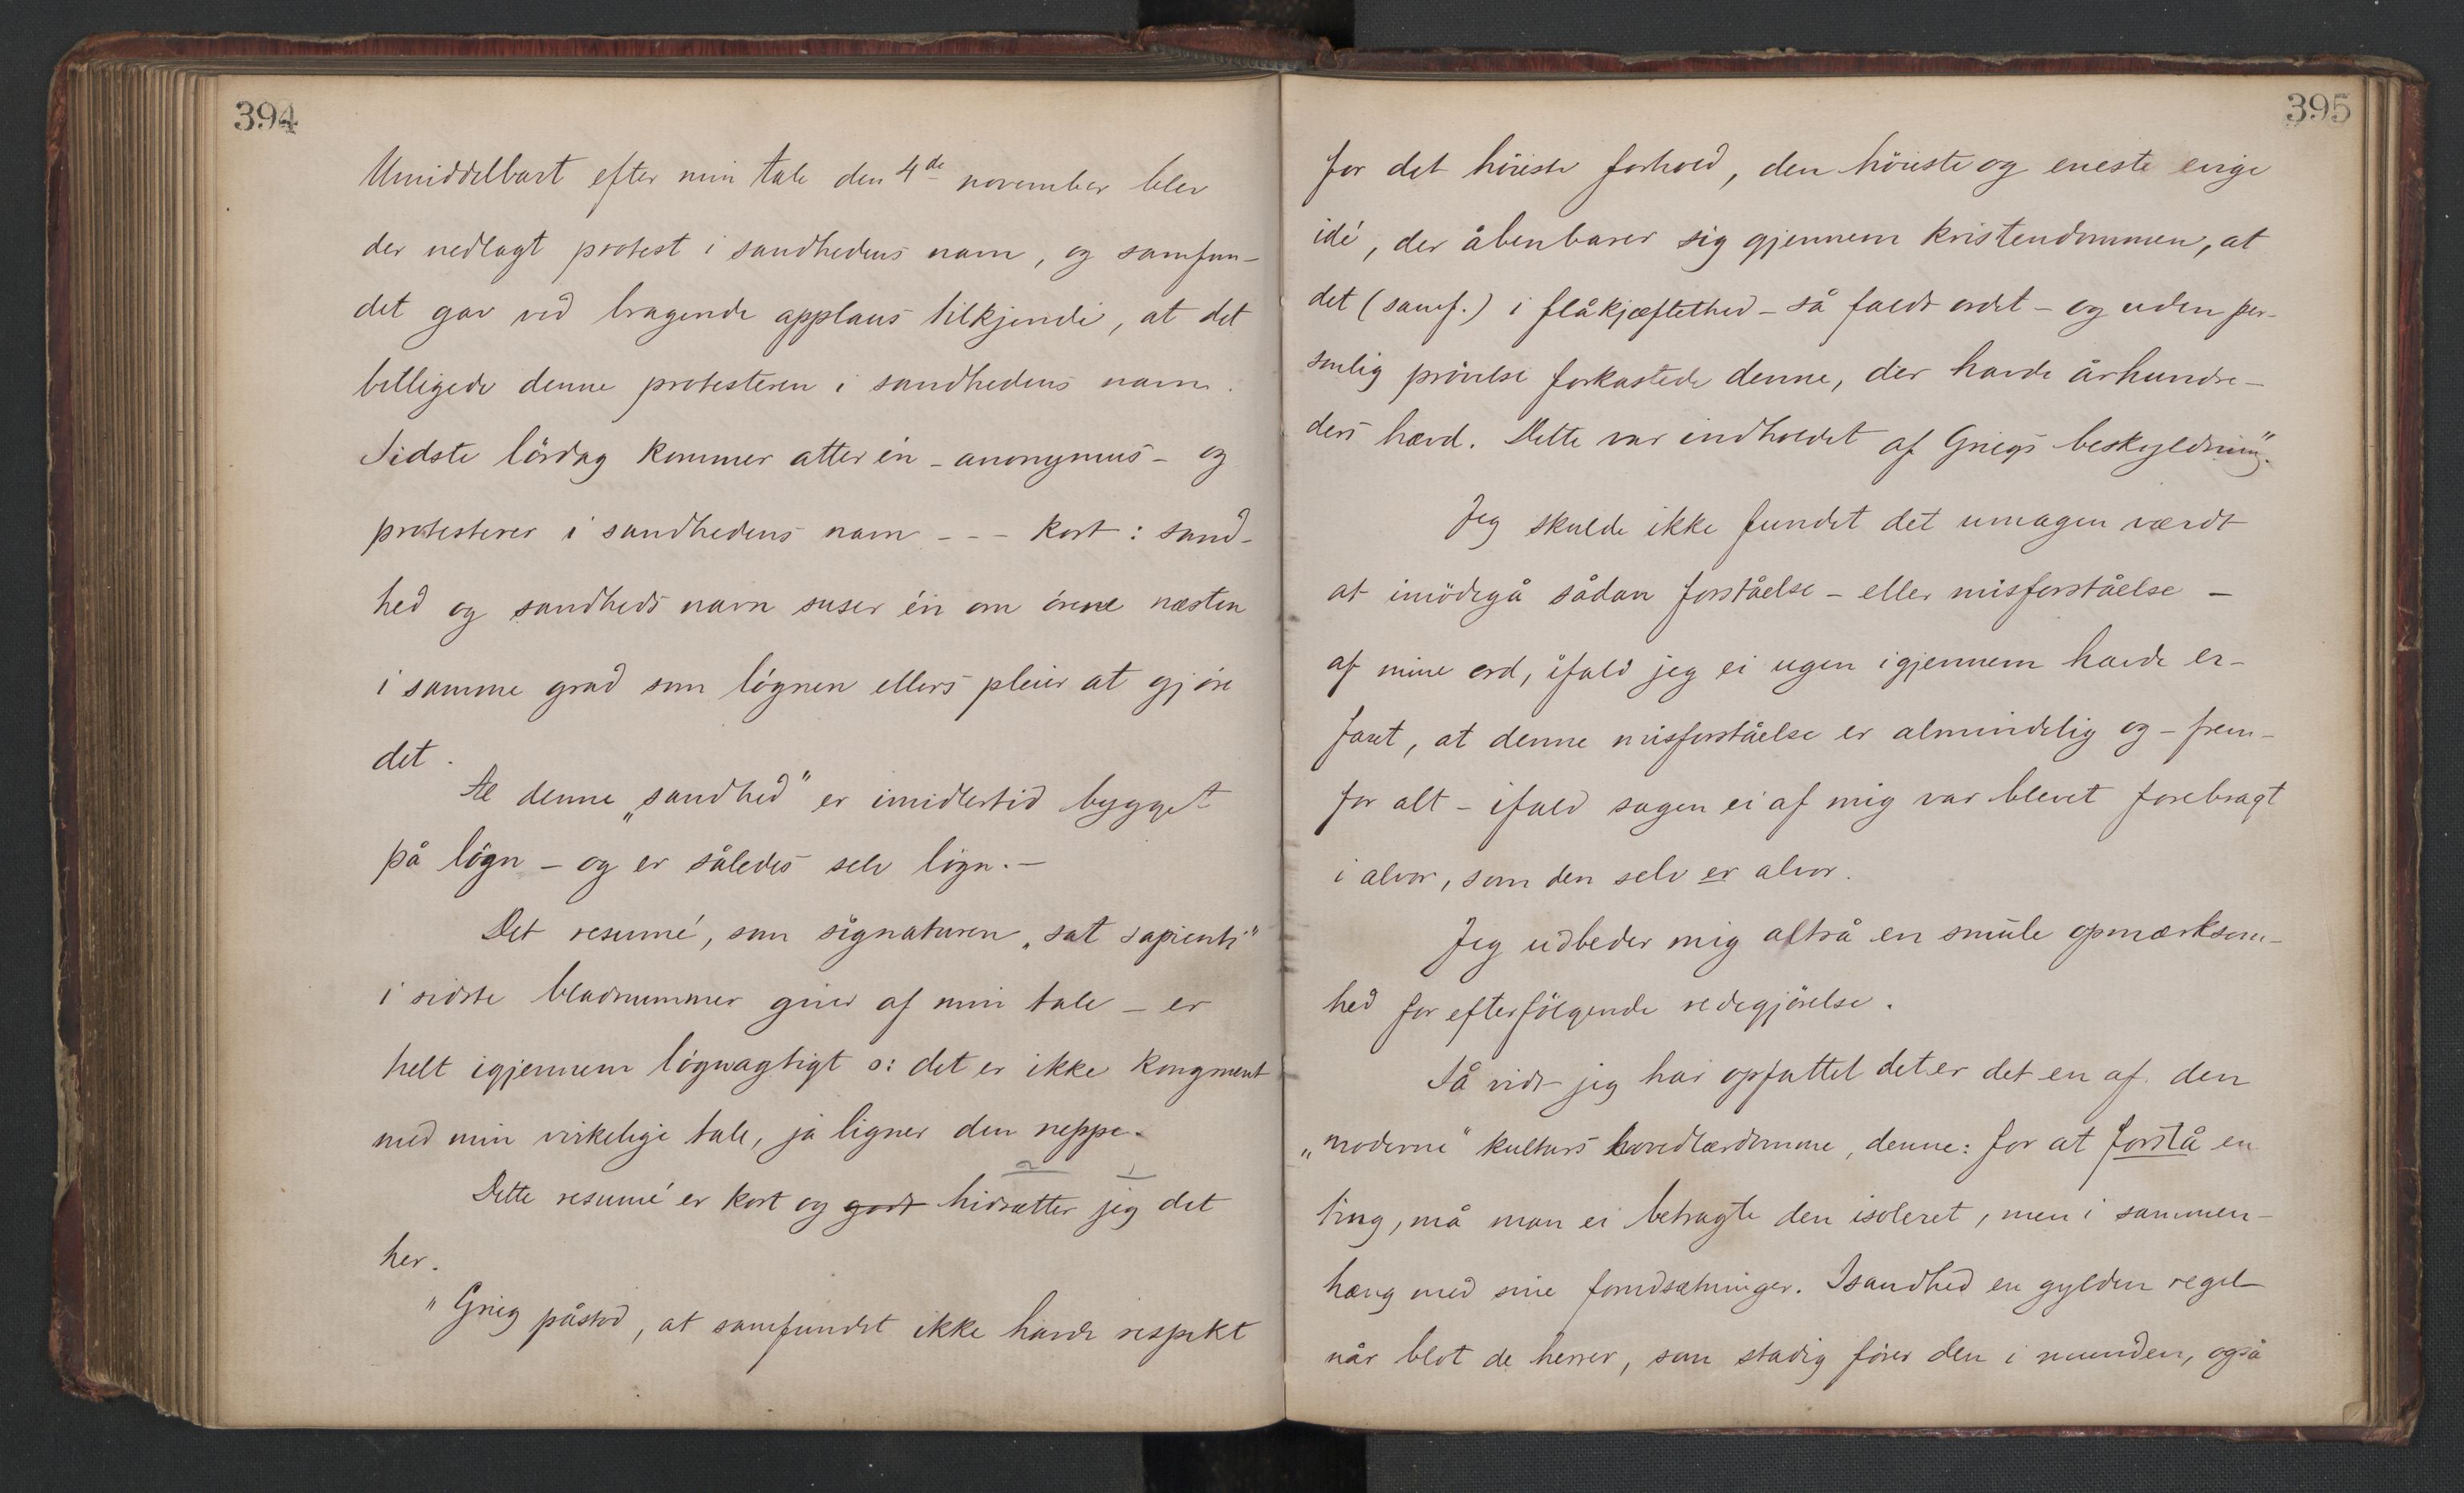 394
Umiddelbart efter min tale den 4de november blev
der nedlagt protest i sandhedens navn, og samfun-
det gav ved bragende applaus tilkjende, at det
billigede denne protesteren i sandhedens navn.
Sidste lördag kommer atter én – anonymus – og
protesterer i sandhedens navn - - - kort: sand-
hed og sandheds navn suser én om örene næsten
i samme grad som lögnen ellers pleier at gjöre
det.
Al denne „sandhed" er imidlertid bygget
på lögn – og er således selv lögn. –
Det resumé, som signaturen „sat sapienti"
i sidste bladnummer giver af min tale – er
helt igjennem lögnagtigt ɔ: det er ikke kongruent
med min virkelige tale, ja ligner den neppe.
Dette resumé er kort og godt hidsætter jeg det
her.
"Grieg påstod, at samfundet ikke havde respekt
395
for det höieste forhold, den höieste og eneste evige
idé, der åbenbarer sig gjennem kristendommen, at
det (samf.) i flåkjæftethed – så faldt ordet – og uden per-
sonlig prövelse forkastede denne, der havde århundre-
ders hævd. Dette var indholdet af Griegs beskyldning".
Jeg skulde ikke fundet det umagen værdt
at imödegå sådan forståelse – eller misforståelse –
af mine ord, ifald jeg ei ugen igjennem havde er-
faret, at denne misforståelse er almindelig og – frem-
for alt – ifald sagen ei af mig var blevet forebragt
i alvor, som den selv er alvor.
Jeg udbeder mig altså en smule opmærksom-
hed for efterfölgende redegjörelse.
Så vidt jeg har opfattet det er det en af den
„moderne" kulturs hovedlærdomme, denne: for at forstå en
ting, må man ei betragte den isoleret, men i sammen-
hæng med sine forudsætninger. Isandhed en gylden regel
når blot de herrer, som stadig förer den i munden, også